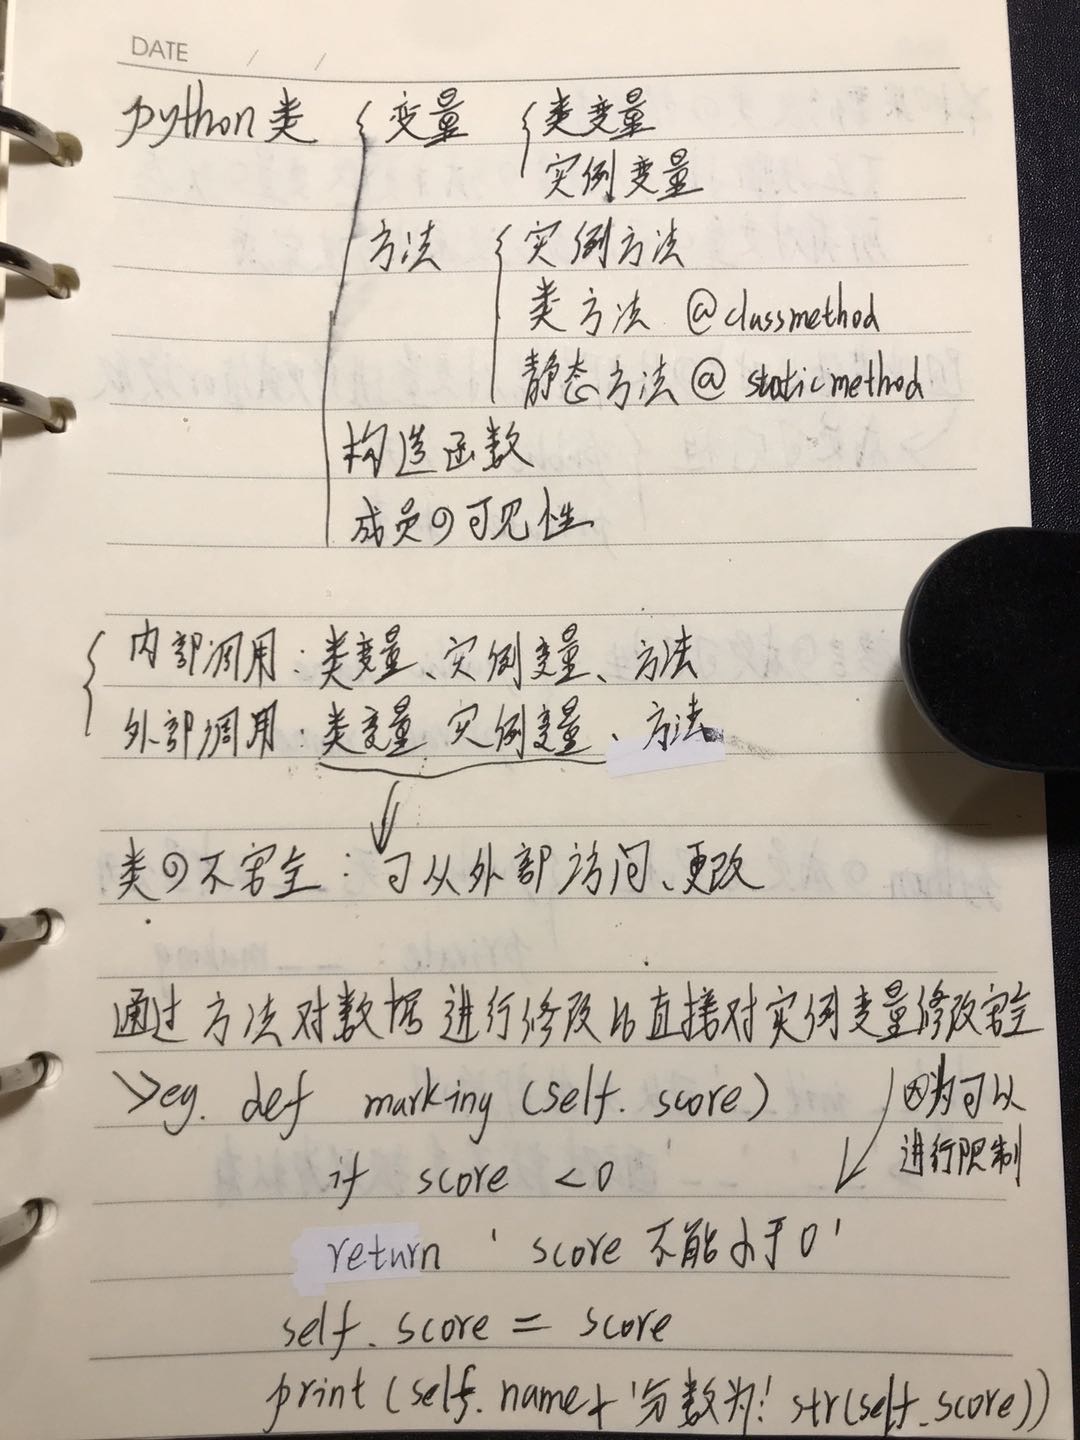 DATE / /
python类 { 变量 { 类变量
实例变量
方法 { 实例方法
类方法 @classmethod
静态方法 @staticmethod
构造函数
成员の可见性
{ 内部调用：类变量、实例变量、方法
外部调用：类变量 实例变量、方法
类の不安全：可从外部访问、更改
通过方法对数据进行修改比直接对实例变量修改安全
>eg. def marking (self. score) 因为可以
进行限制
if score <0
return ' score 不能小于0'
self. score = score
print (self. name + '分数为:' str(self.score))